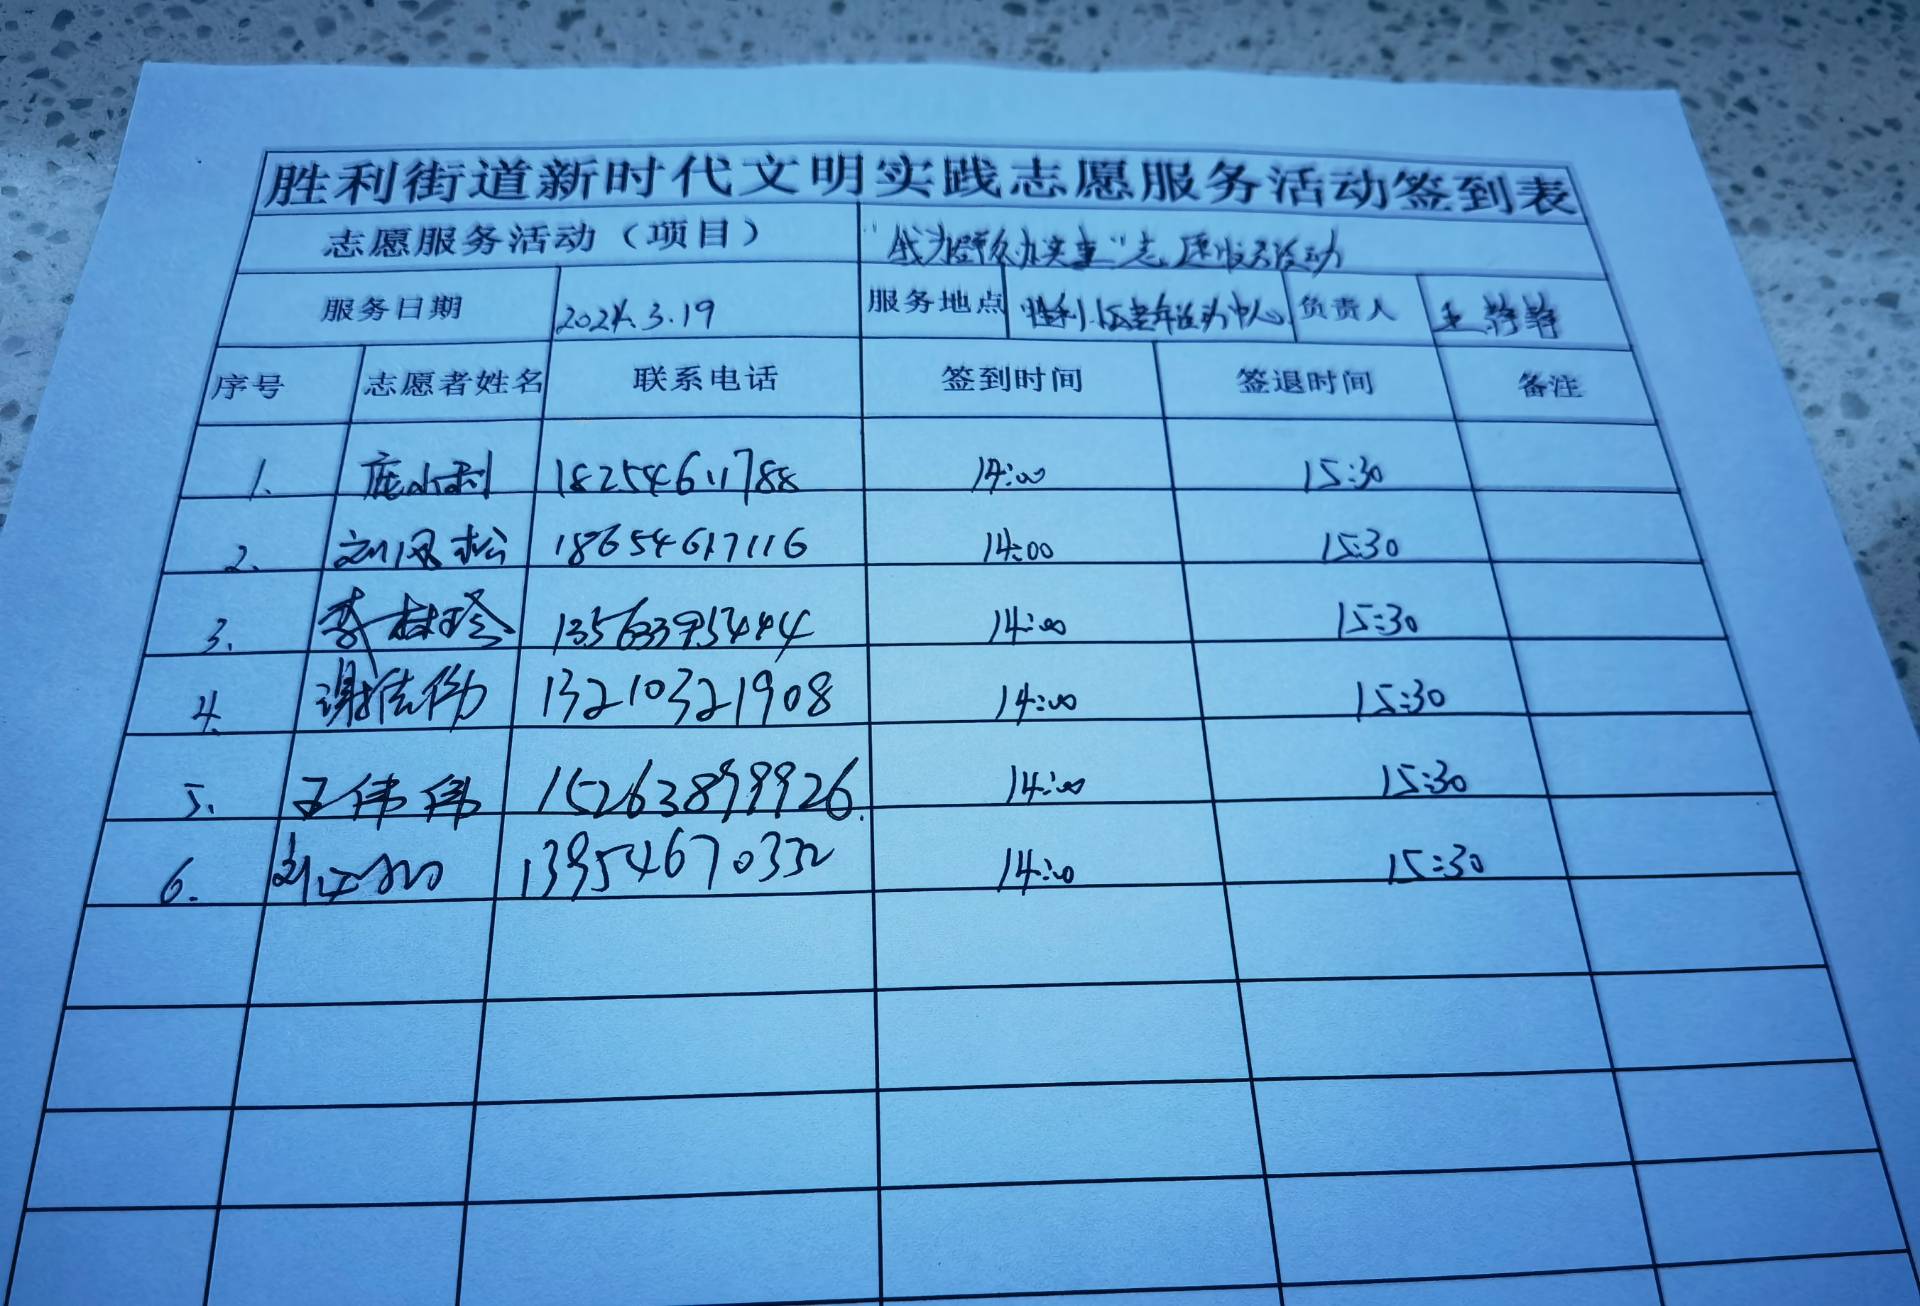 胜利街道新时代文明实践志愿服务活动签到表
志愿服务活动（项目） "我为群众办实事"志愿服务活动
服务日期 2024.3.19 服务地点 胜利社区老年活动中心 负责人 王静静
序号 志愿者姓名 联系电话 签到时间 签退时间 备注
1. 庞小利 18254611788 14:00 15:30
2. 刘凤松 18654617116 14:00 15:30
3. 李树珍 13563395444 14:00 15:30
4. 谢佳伟 13210321908 14:00 15:30
5. 王伟伟 15263899926 14:00 15:30
6. 13954670332 14:00 15:30